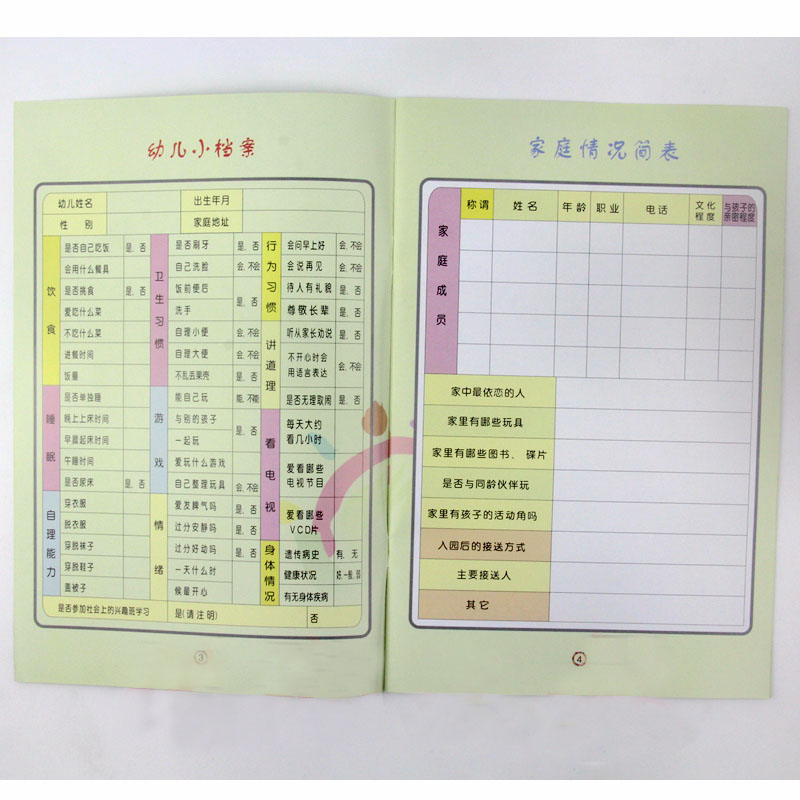 幼儿小档案
幼儿姓名 出生年月
性 别 家庭地址
饮食
是否自己吃饭 是、否
会用什么餐具
是否挑食 是、否
爱吃什么菜
不吃什么菜
进餐时间
饭量
睡眠
是否单独睡
晚上上床时间
早晨起床时间
午睡时间
是否尿床 是、否
自理能力
穿衣服
脱衣服
穿脱袜子
穿脱鞋子
盖被子
卫生习惯
是否刷牙 是、否
自己洗脸 会、不会
饭前便后
洗手 是、否
自理小便 会、不会
自理大便 会、不会
不乱丢果壳 是、否
游戏
能自己玩 能、不能
与别的孩子
一起玩 是、否
爱玩什么游戏
自己整理玩具 会、不会
情绪
爱发脾气吗 是、否
过分安静吗 是、否
过分好动吗 是、否
一天什么时
候最开心
行为习惯
会问早上好 会、不会
会说再见 会、不会
待人有礼貌 是、否
尊敬长辈 是、否
讲道理
听从家长劝说 是、否
不开心时会
用语言表达 会、不会
是否无理取闹 是、否
看电视
每天大约
看几小时
爱看哪些
电视节目
爱看哪些
VCD片
身体情况
遗传病史 有、无
健康状况 好、一般、弱
有无身体疾病
是否参加社会上的兴趣班学习 是(请注明) 否
3
家庭情况简表
家庭成员
称谓 姓名 年龄 职业 电话 文化程度 与孩子的亲密程度
家中最依恋的人
家里有哪些玩具
家里有哪些图书、碟片
是否与同龄伙伴玩
家里有孩子的活动角吗
入园后的接送方式
主要接送人
其它
4